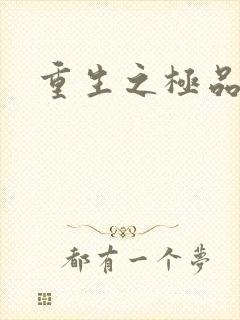 重生之極品
都有一个夢